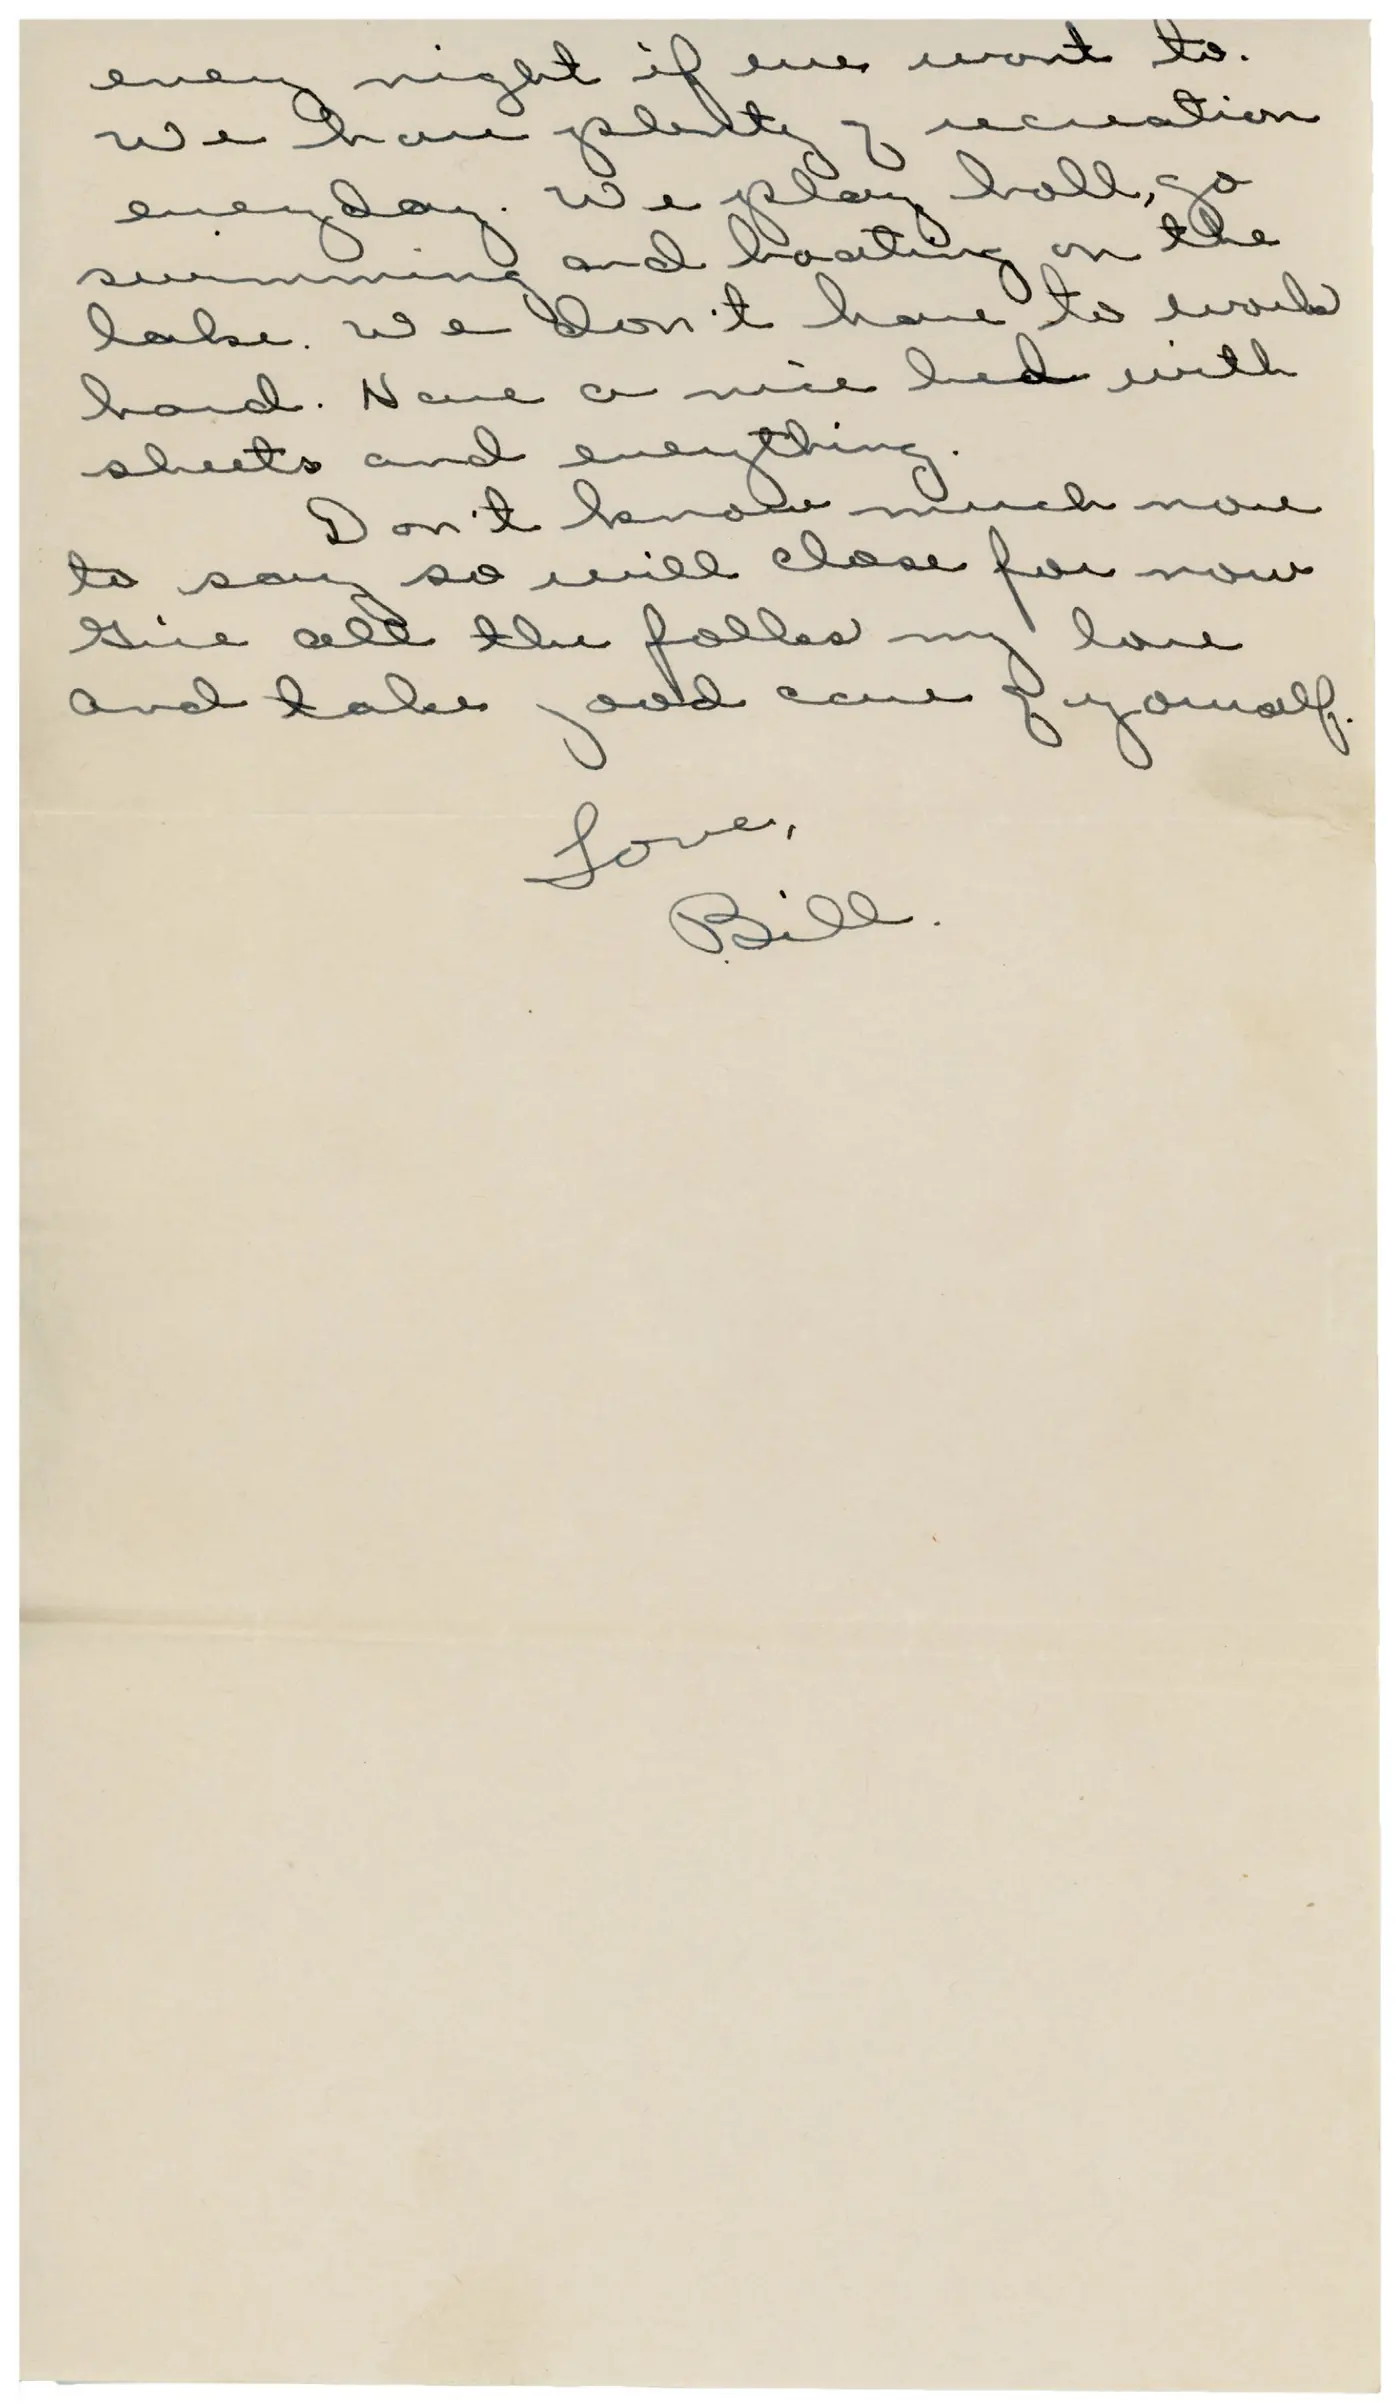 every night if we want to.
We have plenty of recreation
everyday. We play ball, go
swimming and boating on the
lake. We don't have to work
hard. Have a nice bed with
sheets and everything.
Don't know much more
to say so will close for now
Give all the folks my love
and take good care of yourself.
Love,
Bill.